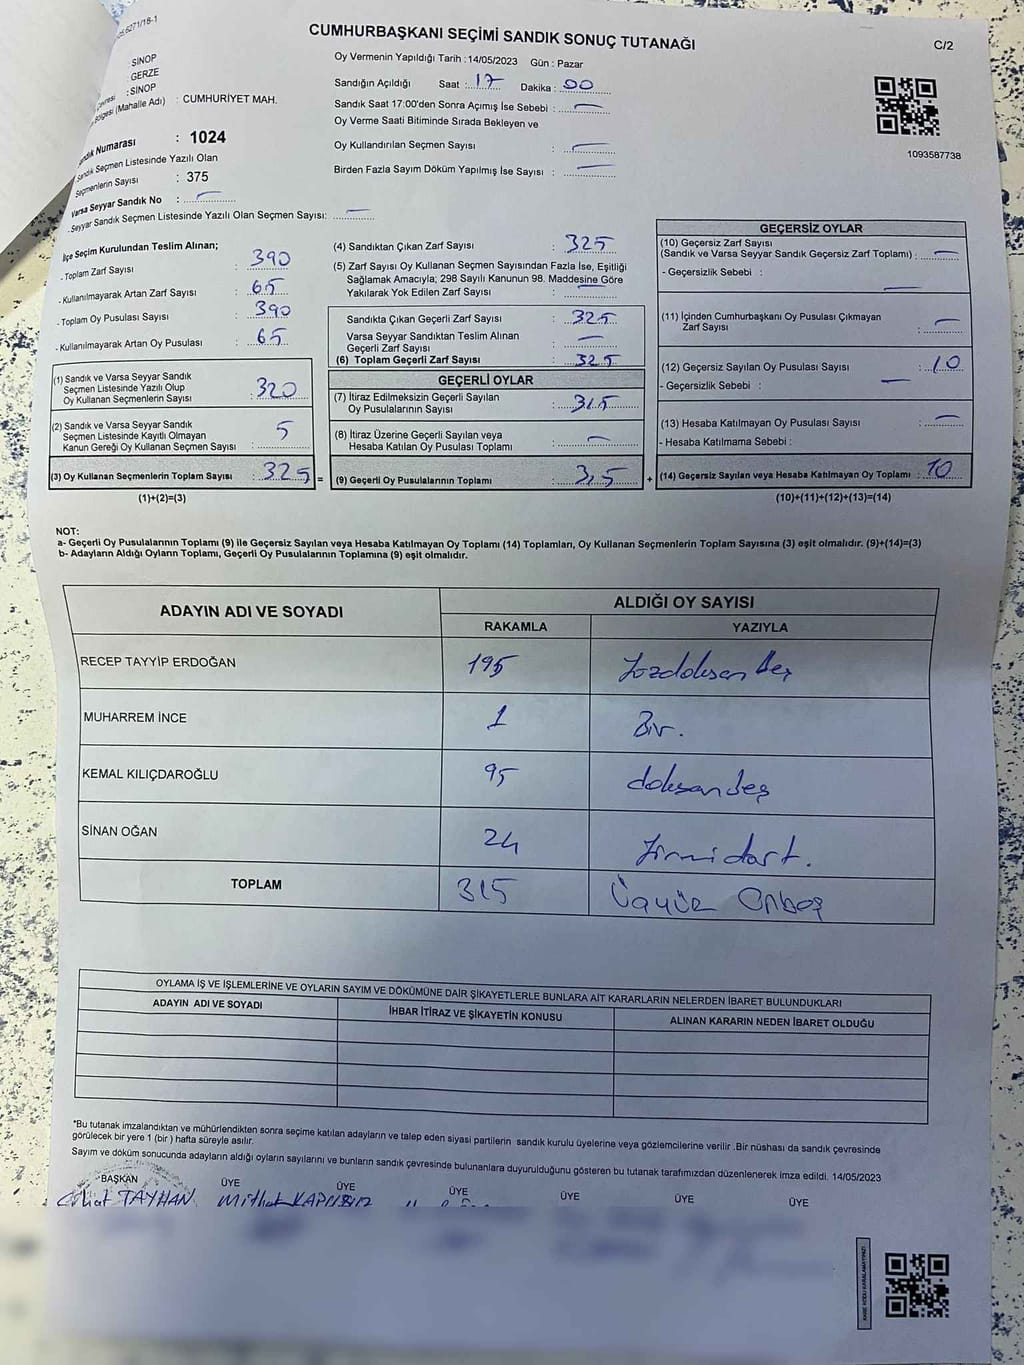 CUMHURBAŞKANI SEÇİMİ SANDIK SONUÇ TUTANAĞI
C/2
SİNOP
: GERZE
: SİNOP
(Mahalle Adı) : CUMHURİYET MAH.
Oy Vermenin Yapıldığı Tarih : 14/05/2023 Gün : Pazar
Sandığın Açıldığı Saat : 17 Dakika : 00
Sandık Saat 17:00'den Sonra Açımış İse Sebebi : —
Oy Verme Saati Bitiminde Sırada Bekleyen ve
Oy Kullandırılan Seçmen Sayısı : —
Birden Fazla Sayım Döküm Yapılmış İse Sayısı : —
1093587738
Numarası : 1024
Sandık Seçmen Listesinde Yazılı Olan
Seçmenlerin Sayısı : 375
Varsa Seyyar Sandık No : —
- Seyyar Sandık Seçmen Listesinde Yazılı Olan Seçmen Sayısı: —
İlçe Seçim Kurulundan Teslim Alınan;
- Toplam Zarf Sayısı : 390
- Kullanılmayarak Artan Zarf Sayısı : 65
- Toplam Oy Pusulası Sayısı : 390
- Kullanılmayarak Artan Oy Pusulası : 65
(1) Sandık ve Varsa Seyyar Sandık
Seçmen Listesinde Yazılı Olup
Oy Kullanan Seçmenlerin Sayısı : 320
(2) Sandık ve Varsa Seyyar Sandık
Seçmen Listesinde Kayıtlı Olmayan
Kanun Gereği Oy Kullanan Seçmen Sayısı : 5
(3) Oy Kullanan Seçmenlerin Toplam Sayısı : 325 =
(1)+(2)=(3)
(4) Sandıktan Çıkan Zarf Sayısı : 325
(5) Zarf Sayısı Oy Kullanan Seçmen Sayısından Fazla İse, Eşitliği
Sağlamak Amacıyla; 298 Sayılı Kanunun 98. Maddesine Göre
Yakılarak Yok Edilen Zarf Sayısı : —
Sandıkta Çıkan Geçerli Zarf Sayısı : 325
Varsa Seyyar Sandıktan Teslim Alınan
Geçerli Zarf Sayısı : —
(6) Toplam Geçerli Zarf Sayısı : 325
GEÇERLİ OYLAR
(7) İtiraz Edilmeksizin Geçerli Sayılan
Oy Pusulalarının Sayısı : 315
(8) İtiraz Üzerine Geçerli Sayılan veya
Hesaba Katılan Oy Pusulası Toplamı : —
(9) Geçerli Oy Pusulalarının Toplamı : 315 +
GEÇERSİZ OYLAR
(10) Geçersiz Zarf Sayısı
(Sandık ve Varsa Seyyar Sandık Geçersiz Zarf Toplamı) : —
- Geçersizlik Sebebi : —
(11) İçinden Cumhurbaşkanı Oy Pusulası Çıkmayan
Zarf Sayısı : —
(12) Geçersiz Sayılan Oy Pusulası Sayısı : 10
- Geçersizlik Sebebi : —
(13) Hesaba Katılmayan Oy Pusulası Sayısı : —
- Hesaba Katılmama Sebebi :
(14) Geçersiz Sayılan veya Hesaba Katılmayan Oy Toplamı : 10
(10)+(11)+(12)+(13)=(14)
NOT:
a- Geçerli Oy Pusulalarının Toplamı (9) ile Geçersiz Sayılan veya Hesaba Katılmayan Oy Toplamı (14) Toplamları, Oy Kullanan Seçmenlerin Toplam Sayısına (3) eşit olmalıdır. (9)+(14)=(3)
b- Adayların Aldığı Oyların Toplamı, Geçerli Oy Pusulalarının Toplamına (9) eşit olmalıdır.
ADAYIN ADI VE SOYADI ALDIĞI OY SAYISI
RAKAMLA YAZIYLA
RECEP TAYYİP ERDOĞAN 195 Yüzdoksan beş
MUHARREM İNCE 1 Bir.
KEMAL KILIÇDAROĞLU 95 doksanbeş
SİNAN OĞAN 24 Yirmidört.
TOPLAM 315 Üçyüz Onbeş
OYLAMA İŞ VE İŞLEMLERİNE VE OYLARIN SAYIM VE DÖKÜMÜNE DAİR ŞİKAYETLERLE BUNLARA AİT KARARLARIN NELERDEN İBARET BULUNDUKLARI
ADAYIN ADI VE SOYADI İHBAR İTİRAZ VE ŞİKAYETİN KONUSU ALINAN KARARIN NEDEN İBARET OLDUĞU
*Bu tutanak imzalandıktan ve mühürlendikten sonra seçime katılan adayların ve talep eden siyasi partilerin sandık kurulu üyelerine veya gözlemcilerine verilir .Bir nüshası da sandık çevresinde
görülecek bir yere 1 (bir ) hafta süreyle asılır.
Sayım ve döküm sonucunda adayların aldığı oyların sayılarını ve bunların sandık çevresinde bulunanlara duyurulduğunu gösteren bu tutanak tarafımızdan düzenlenerek imza edildi. 14/05/2023
BAŞKAN ÜYE ÜYE ÜYE ÜYE ÜYE ÜYE
TAYHAN Mithat